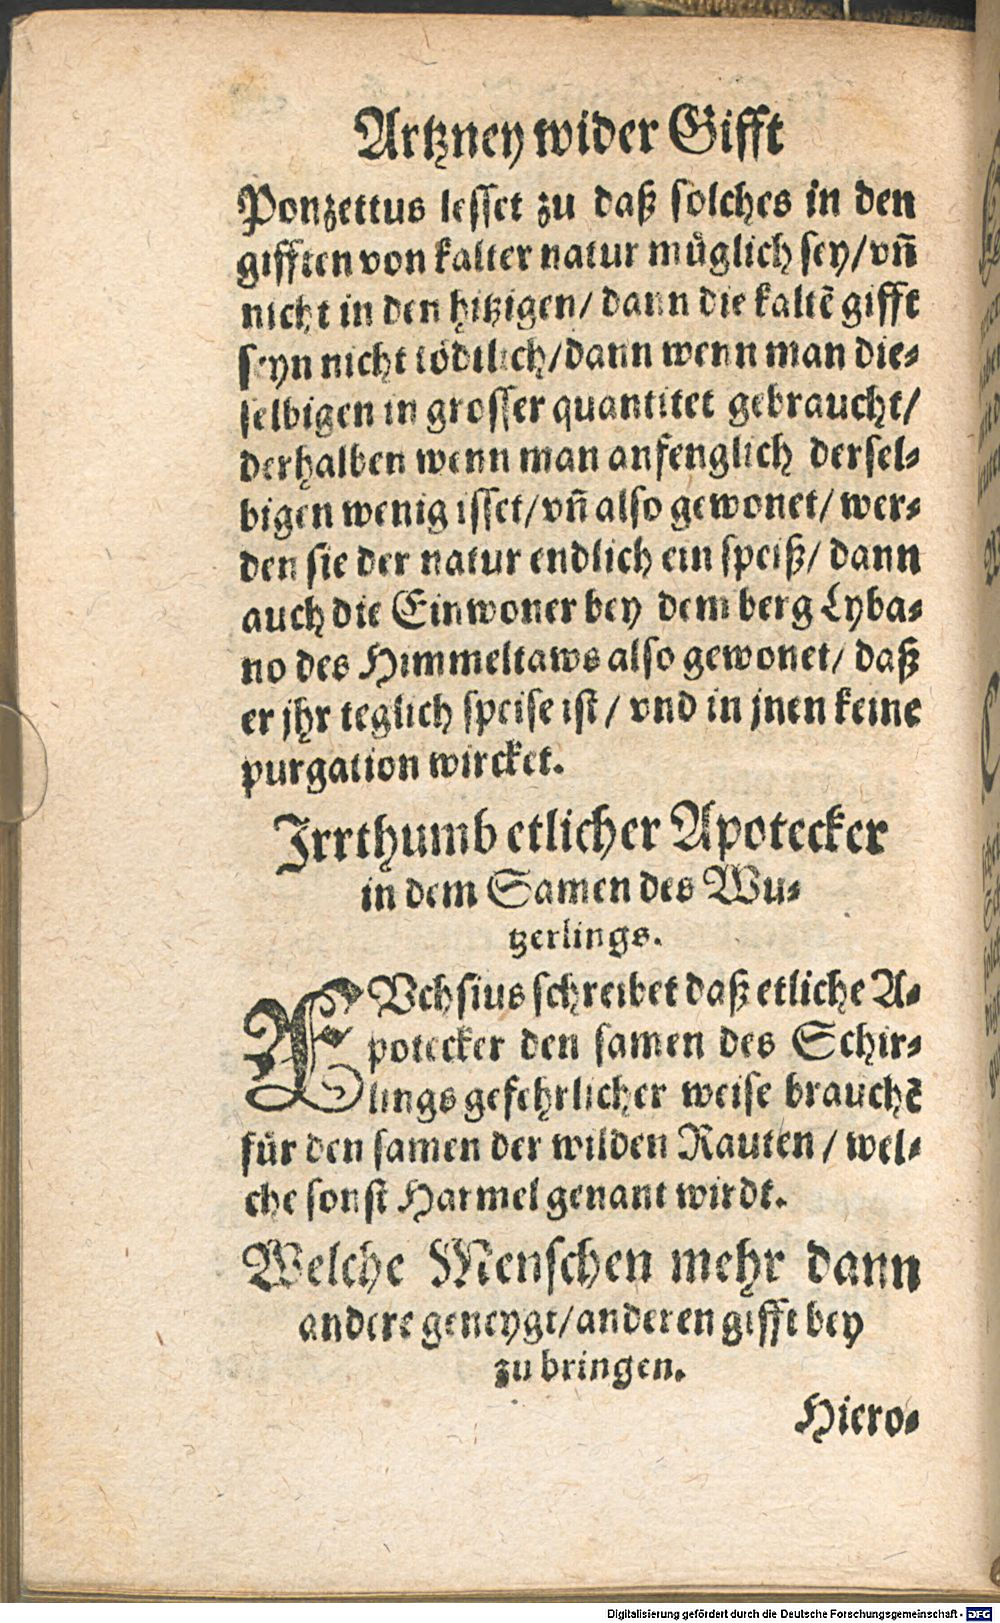 Artzney wider Gifft
Ponzettus lesset zu daß solches in den
gifften von kalter natur müglich sey/ vñ
nicht in den hitzigen/ dann die kaltẽ gifft
seyn nicht tödtlich/ dann wenn man die⸗
selbigen in grosser quantitet gebraucht/
derhalben wenn man anfenglich dersel⸗
bigen wenig isset/ vñ also gewonet/ wer⸗
den sie der natur endlich ein speiß/ dann
auch die Einwoner bey dem berg Lyba⸗
no des Himmeltaws also gewonet/ daß
er jhr teglich speise ist/ vnd in jnen keine
purgation wircket.
Irrthumb etlicher Apotecker
in dem Samen des Wu⸗
tzerlings.
FVchsius schreibet daß etliche A⸗
potecker den samen des Schir⸗
lings gefehrlicher weise brauchẽ
für den samen der wilden Rauten/ wel⸗
che sonst Harmel genant wirdt.
Welche Menschen mehr dann
andere geneygt/ anderen gifft bey
zu bringen.
Hiero⸗
Digitalisierung gefördert durch die Deutsche Forschungsgemeinschaft - DFG